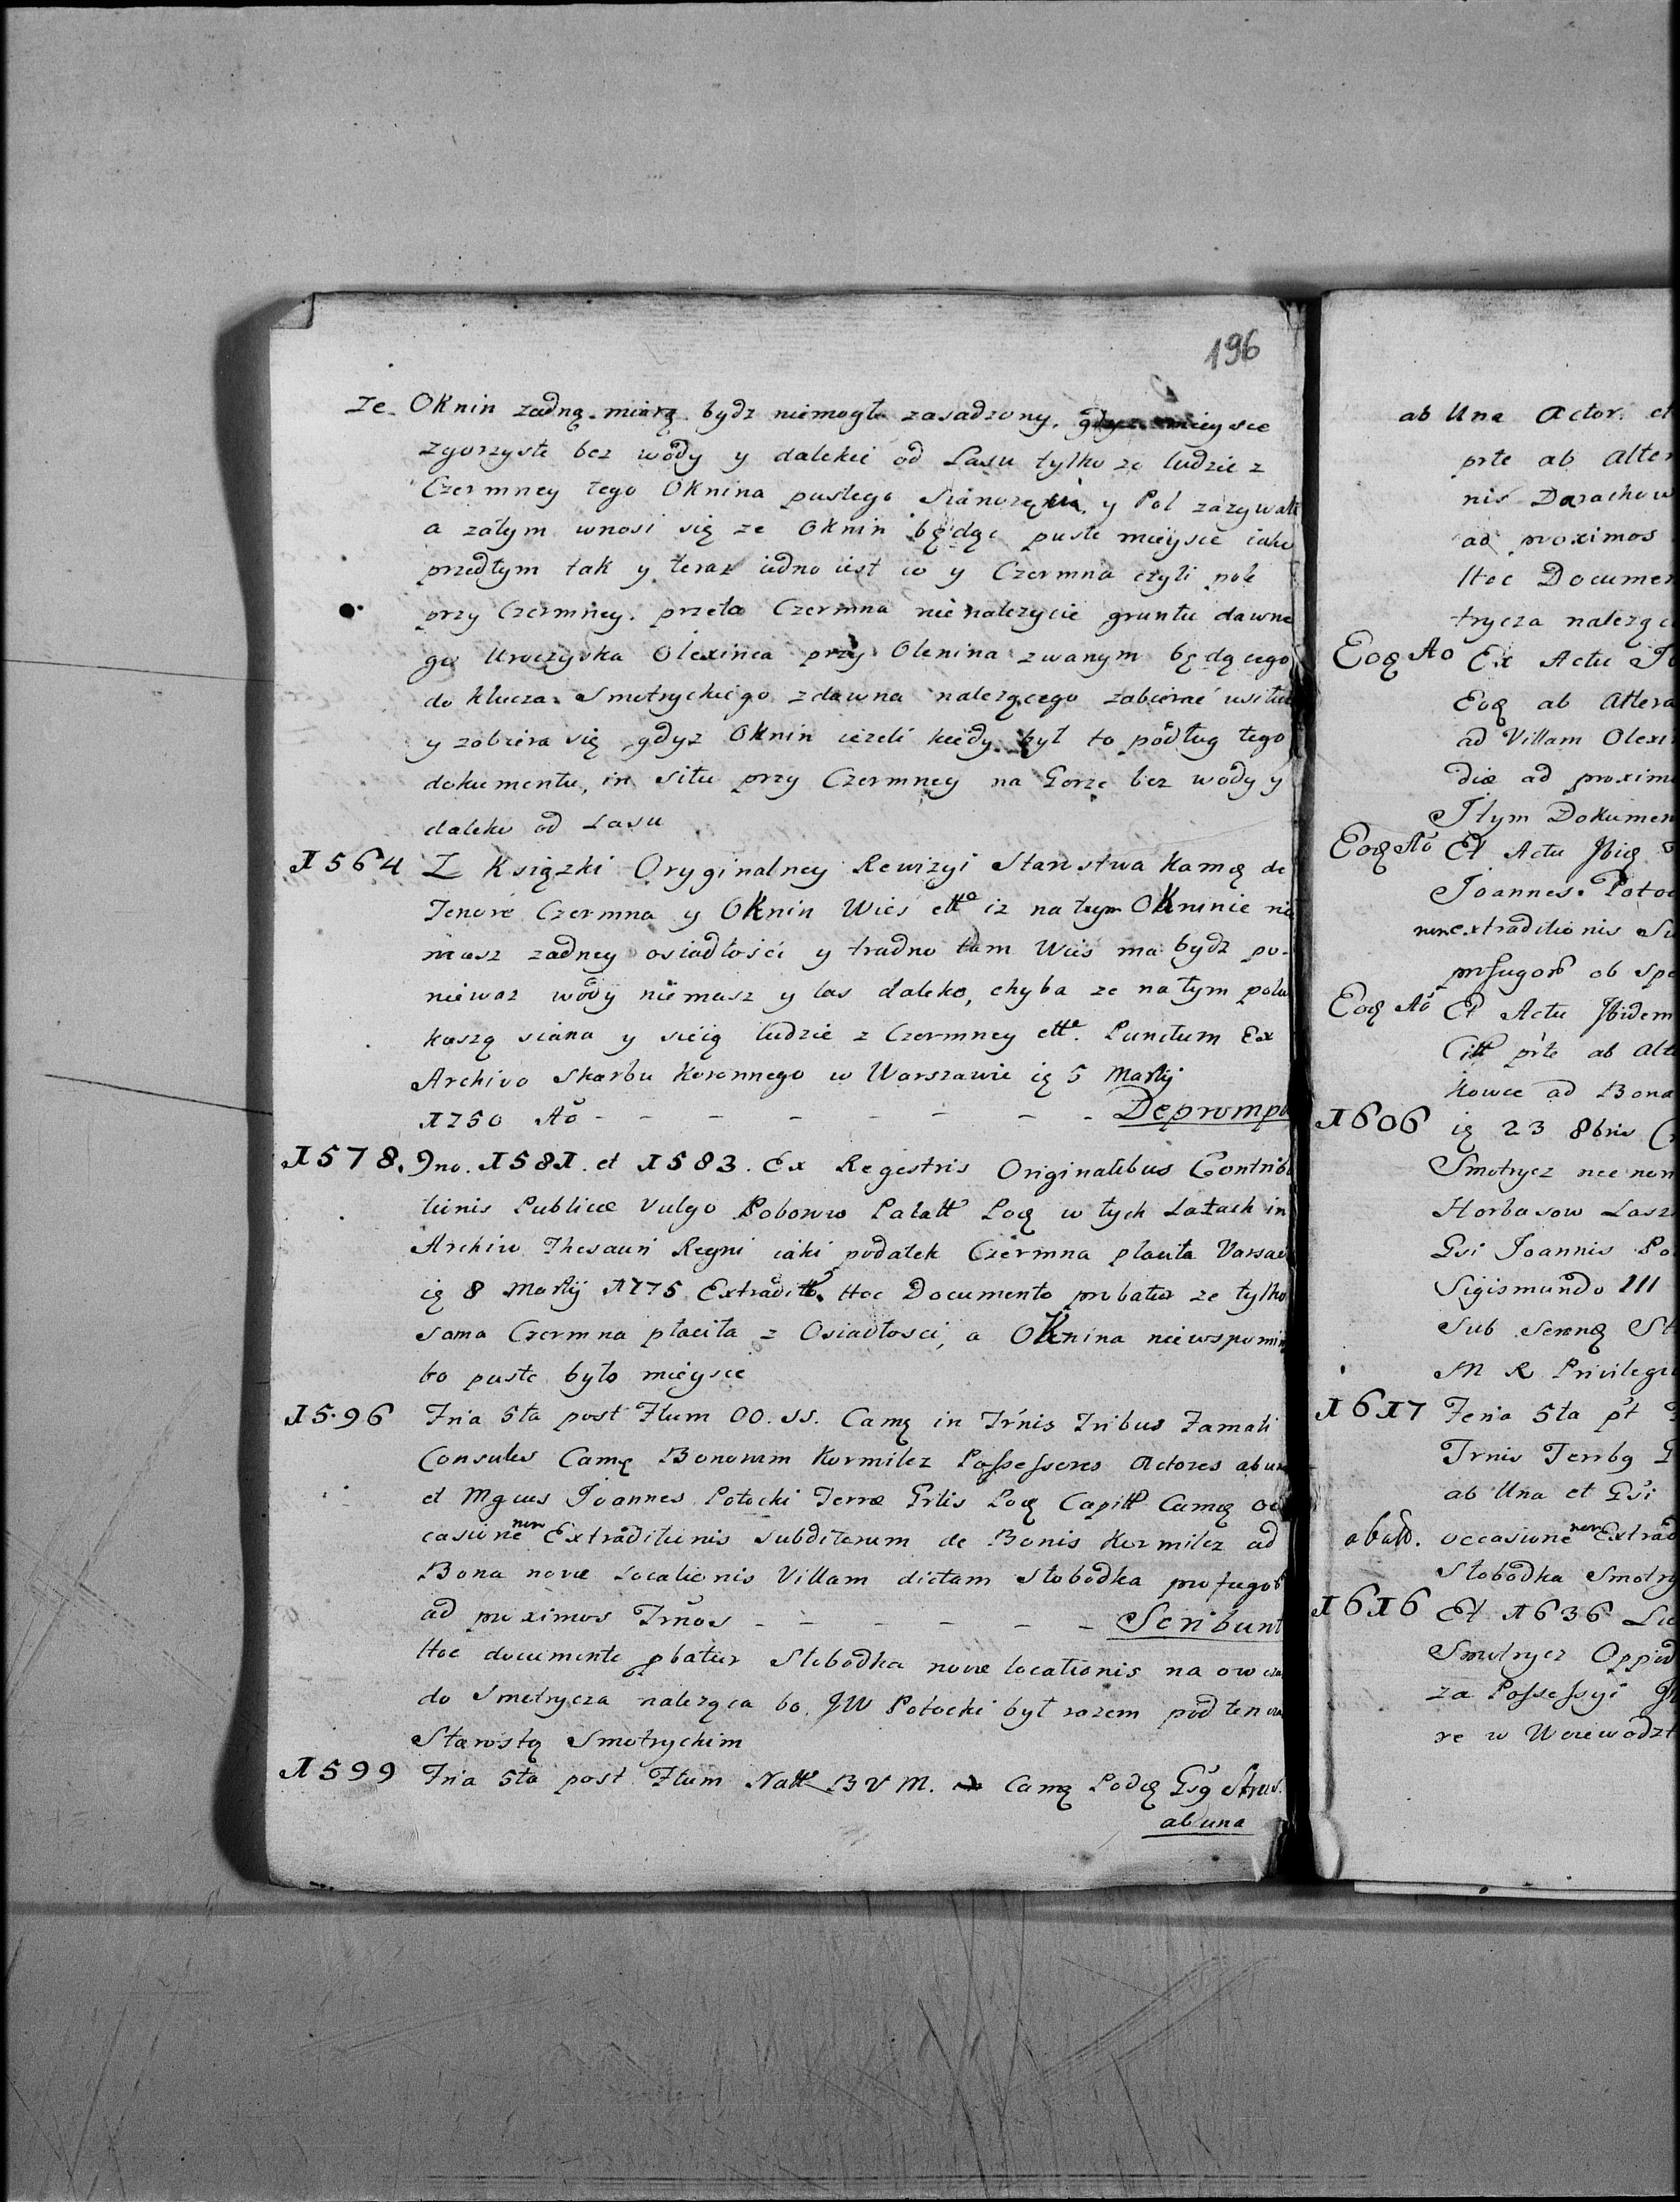 196
ze Oknin zadną miarą bydz niemogł zasadzony, gdyz mieysce
zgorzyste bez wody y dalekie od Lasu tylko ze ludzie z
Czermney tego Oknina pustego Sianozęcia y Pol zazywali
a zatym wnosi się ze Oknin będąc puste mieysce iako
przedtym tak y teraz iedno iest co y Czermna czyli pole
przy Czermney. przeto Czermna nienalezycie gruntu dawne
go Uroczyska Olexinca przy Olenina zwanym będącego
do klucza Smotryckiego zdawna nalezącego zabierać usiłuie
y zabiera się gdyz Oknin iezeli kiedy był to podług tego
dokumentu, in situ przy Czermney na Gorze bez wody y
daleko od Lasu
1564 Z Ksiązki Oryginalney Rewizyi Starostwa Kamę de
Tenore Czermna y Oknin Wies ettª iz na tym Okninie nie
masz zadney osiadłości y trudno tam Wies ma bydz po-
niewaz wody niemasz y las daleko, chyba ze na tym polu
koszą siana y sieią ludzie z Czermney ettª. Punctum Ex
Archivo Skarbu Koronnego w Warszawie ię 5 Martij
1750 Aō - - - - - - - Deprompt
1578. 9no. 1581. et 1583. Ex Regestris Originalibus Contribu
tionis Publicæ vulgo Poborow Palatt Podę w tych Latach in
Archivo Thesauri Regni iaki podatek Czermna płaciła Varsav
ię 8 Martij 1775 Extraditt. Hoc Documento probatur ze tylko
sama Czermna płaciła z Osiadłosci, a Oknina niewspomin
bo puste było mieysce
1596 Fria 5ta post Ftum OO. SS. Camę in Trnis Tribus Famati
Consules Camę Bonorum Kormilcz Possessores Actores ab una
et Mgcus Joannes Potocki Terræ Grlis Podę Capitt Camę oc
casione non Extraditionis subditorum de Bonis Kormilcz ad
Bona novæ Locationis Villam dictam Słobodka profugor
ad proximos Trnos - - - - - Scribunt
Hoc documento pbatur Słobodka novæ locationis na ow czas
do Smotrycza naleząca bo JW Potocki był razem pod ten czas
Starostą Smotryckim
1599 Fria 5ta post Ftum Natt BVM. Camę Podę Gsg Strus.
ab una
ab Una Actor. et
prte ab Alter
nis Darachow
ad proximos
Hoc Documen
trycza nalezące
Eoę Ao Ex Actu
Eoę ab Altera
ad Villam Olexi
diæ ad proxim
Itym Dokumen
Eoę Aō Et Actu Ibię
Joannes Potoc
non extraditionis Su
profugor ob spe
Eoę Aō Et Actu Ibidem
Citt prte ab Alte
kowce ad Bona
1606 ię 23 8bris
Smotrycz nec non
Horbasow Lasz
Gsi Joannis Po
Sigismundo III
Sub Serenę St
M R Privilegi
1617 Feria 5ta pt
Trnis Terrbg
ab Una et Gsi
occasione non Extrad
Słobodka Smotry
1616 Et 1636
Smotrycz Oppid
za Possessyi
re w Woiewodzt